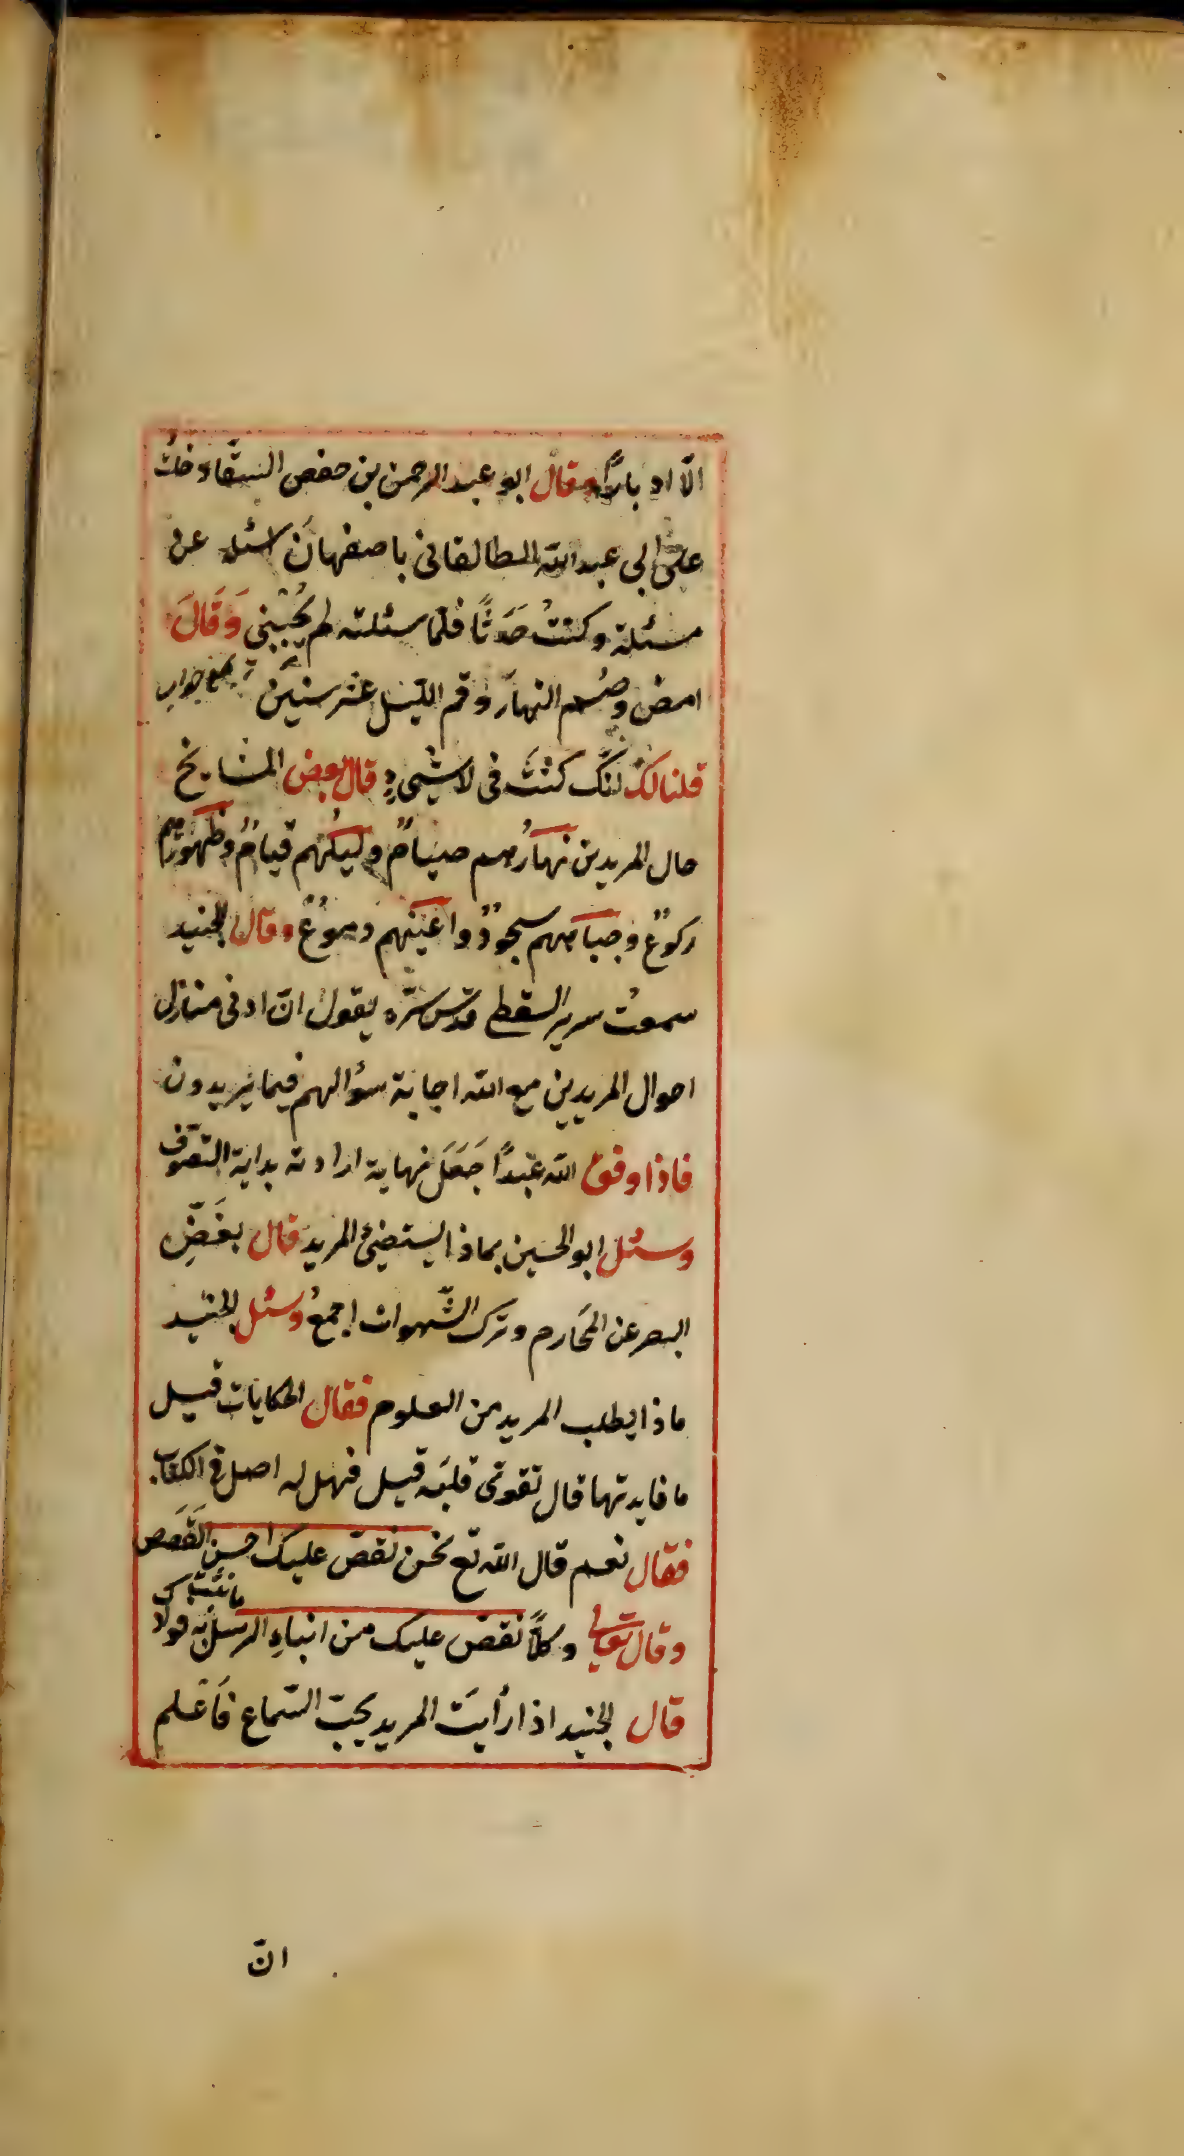 الّا ادبارًا وقال ابو عبد الرحمن بن حفص السقّاء دخلتُ
على ابي عبد الله الطالقانى باصفهانَ اسئله عن
مسئلة وكنتُ حَدَثًا فلمّا سئلته لم يُجبْني وَقَالَ
امض وصُم النهارَ وقم الليل عشر سنينَ جوابِ
قلنا لك لنّك كنتَ فى لا شيءٍ قال بعض المشايخ
حال المريدين نهارُهم صيامٌ وليلُهم قيامٌ وظهورُهم
ركوعٌ وجباههم سجودٌ واعينهم دموعٌ وقال الجنيد
سمعتُ سرير السقطى قدّس سرّه يقول انّ ادنى منازل
احوال المريدين مع الله اجابة سؤالهم فيما يُريدون
فاذا وفق الله عبدًا جَعَلَ نهاية ارادته بداية التصوّف
وسئل ابو الحسين بماذا يستضئ المريد قال بغَضِّ
البصر عن المحَارم وترك الشّهوات اجمعُ وسئل الجنيد
ماذا يطلب المريد من العلوم فقال الحكايات قيل
ما فايدتها قال تقوّى قلبَه قيل فهل له اصل فى الكتاب
فقال نعم قال الله تع نحن نقصّ عليك احسن القَصَص
وقال تعالى وكلًّا نقصّ عليك من انباءِ الرسل ما نثبّت به فوادك
قال الجنيد اذا رأيتَ المريد يحبّ السّماع فَاعْلم
انّ